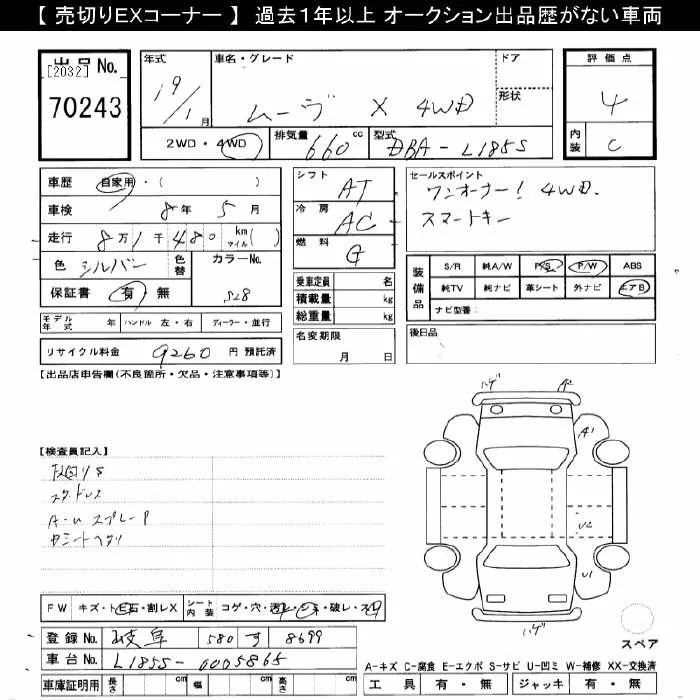 【 売切りEXコーナー 】 過去1年以上 オークション出品歴がない車両
出品 No.
[2032]
70243
年式
19/1月
車名・グレード
ムーヴ X 4WD
ドア
形状
2WD・4WD
排気量 660 cc
型式 DBA-L185S
評価点
4
内装
C
車歴 自家用・( )
車検 8年 5月
走行 8万1千480 km マイル( )
色 シルバー
色替
カラーNo.
S28
保証書 有・無
モデル年式 年 ハンドル 左・右 ディーラー・並行
リサイクル料金 9260 円 預託済
シフト AT
冷房 AC
燃料 G
乗車定員 名
積載量 kg
総重量 kg
名変期限 月 日
セールスポイント
ワンオーナー! 4WD.
スマートキー
装備品
S/R 純A/W P/S P/W ABS
純TV 純ナビ 革シート 外ナビ エアB
ナビ型番:
後日品
【出品店申告欄(不良箇所・欠品・注意事項等)】
【検査員記入】
スタッドレス
A-U スプレーP
シートヘタリ
ハゲ
A2
A1
U2
U1
ハゲ
スペア
FW キズ・トビ石・割レX
シート内装 コゲ・穴・汚レ・シミ・破レ・スレ
登録 No. 岐阜 580 す 8699
車台 No. L185S-0005865
車庫証明用 長さ cm 幅 cm 高さ cm
A-キズ C-腐食 E-エクボ S-サビ U-凹ミ W-補修 XX-交換済
工具 有・無 ジャッキ 有・無